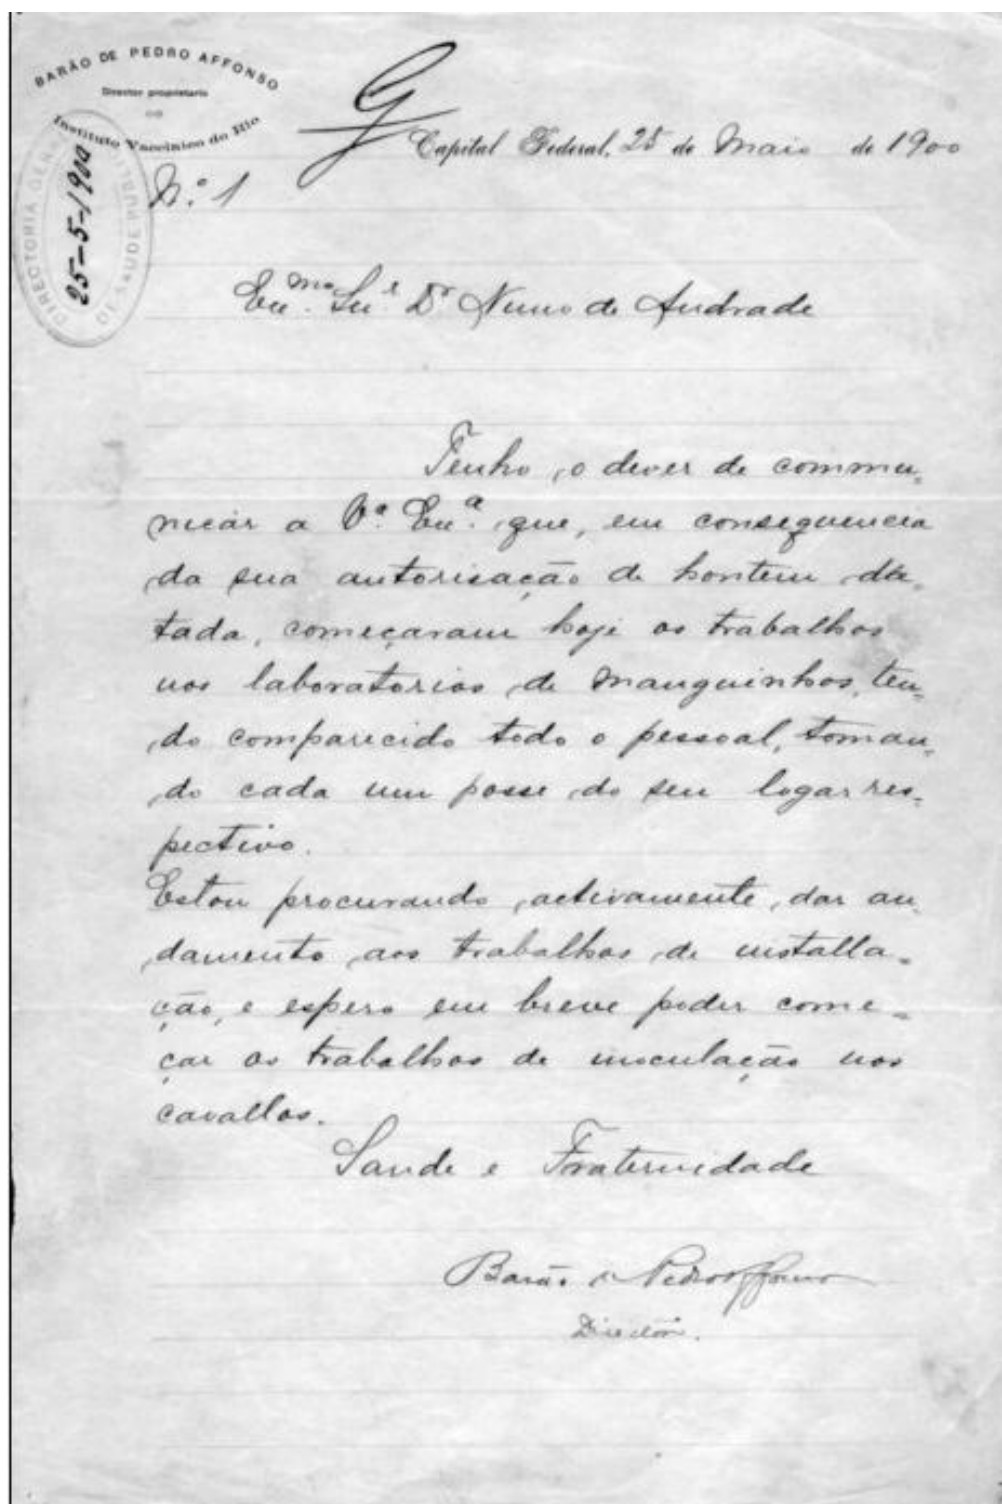 BARÃO DE PEDRO AFFONSO
Director proprietario
Instituto Vaccinico do Rio
DIRECTORIA GERAL DE SAUDE PUBLICA
25-5-1900
G
Capital Federal, 25 de Maio de 1900
N.º 1
Exmo. Snr. Dr Nuno de Andrade
Tenho o dever de commu-
nicar a Vª. Exª. que, em consequencia
da sua autorisação de hontem da-
tada, começaram hoje os trabalhos
nos laboratorios de Manguinhos, ten-
do comparecido todo o pessoal, toman-
do cada um posse do seu logar res-
pectivo.
Estou procurando activamente dar an-
damento aos trabalhos de installa-
ção, e espero em breve poder come-
çar os trabalhos de inoculação nos
cavallos.
Saude e Fraternidade
Barão de Pedro Affonso
Director.